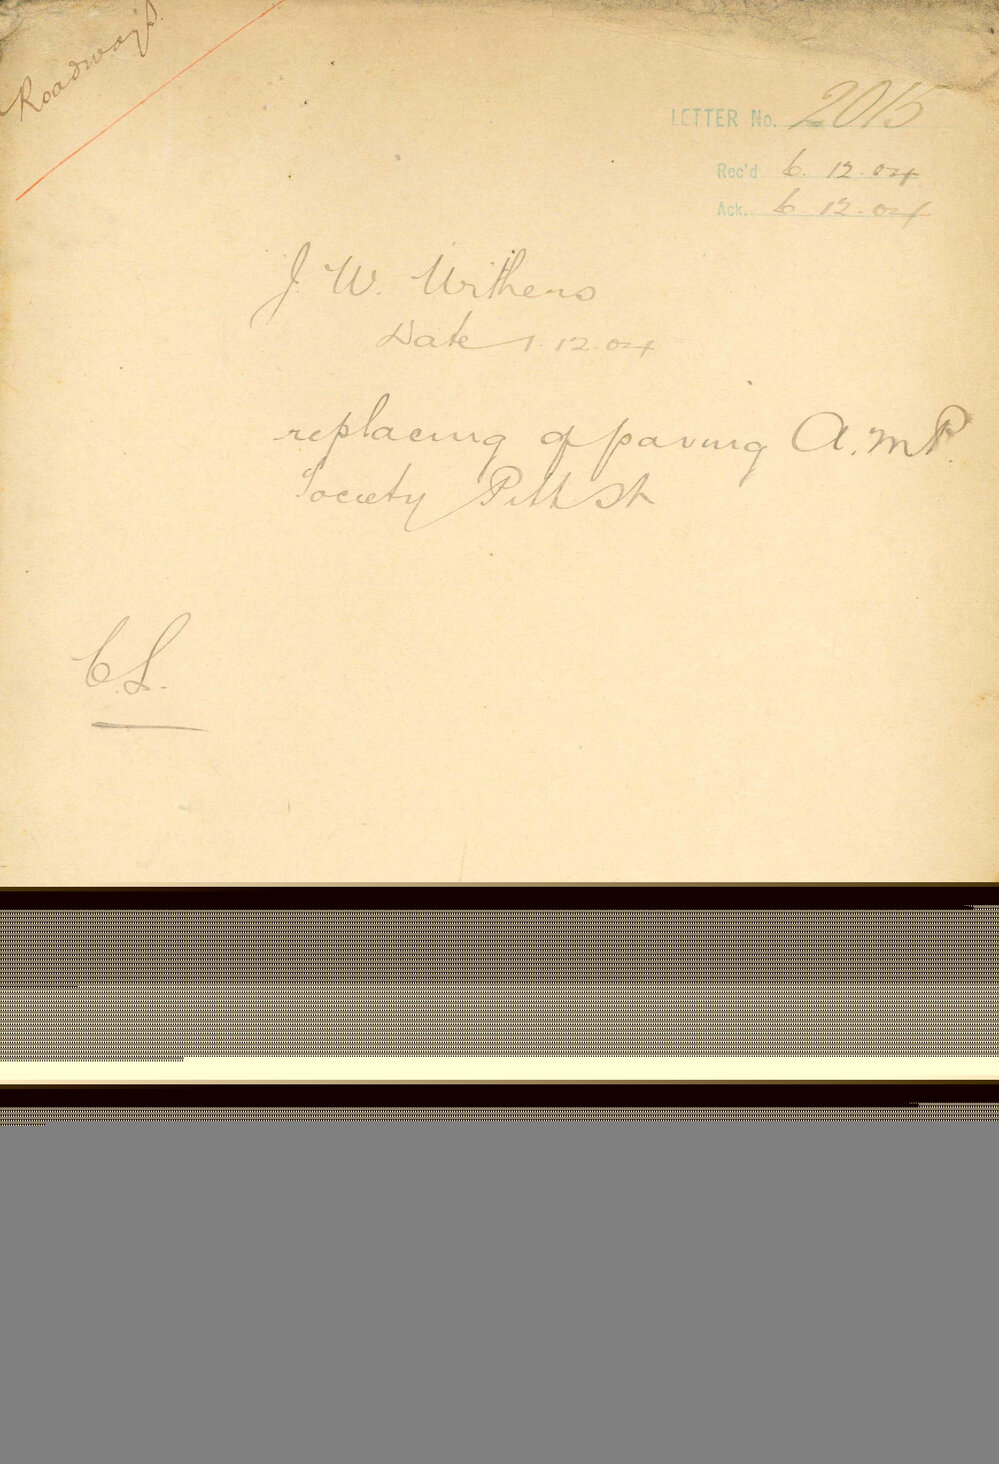 Roadways
LETTER No. 2015
Rec'd 6. 12. 04
Ack. 6 12. 04
J. W. Withers
Date 1.12.04
replacing of paving A.M.P.
Society Pitt St
C.S.